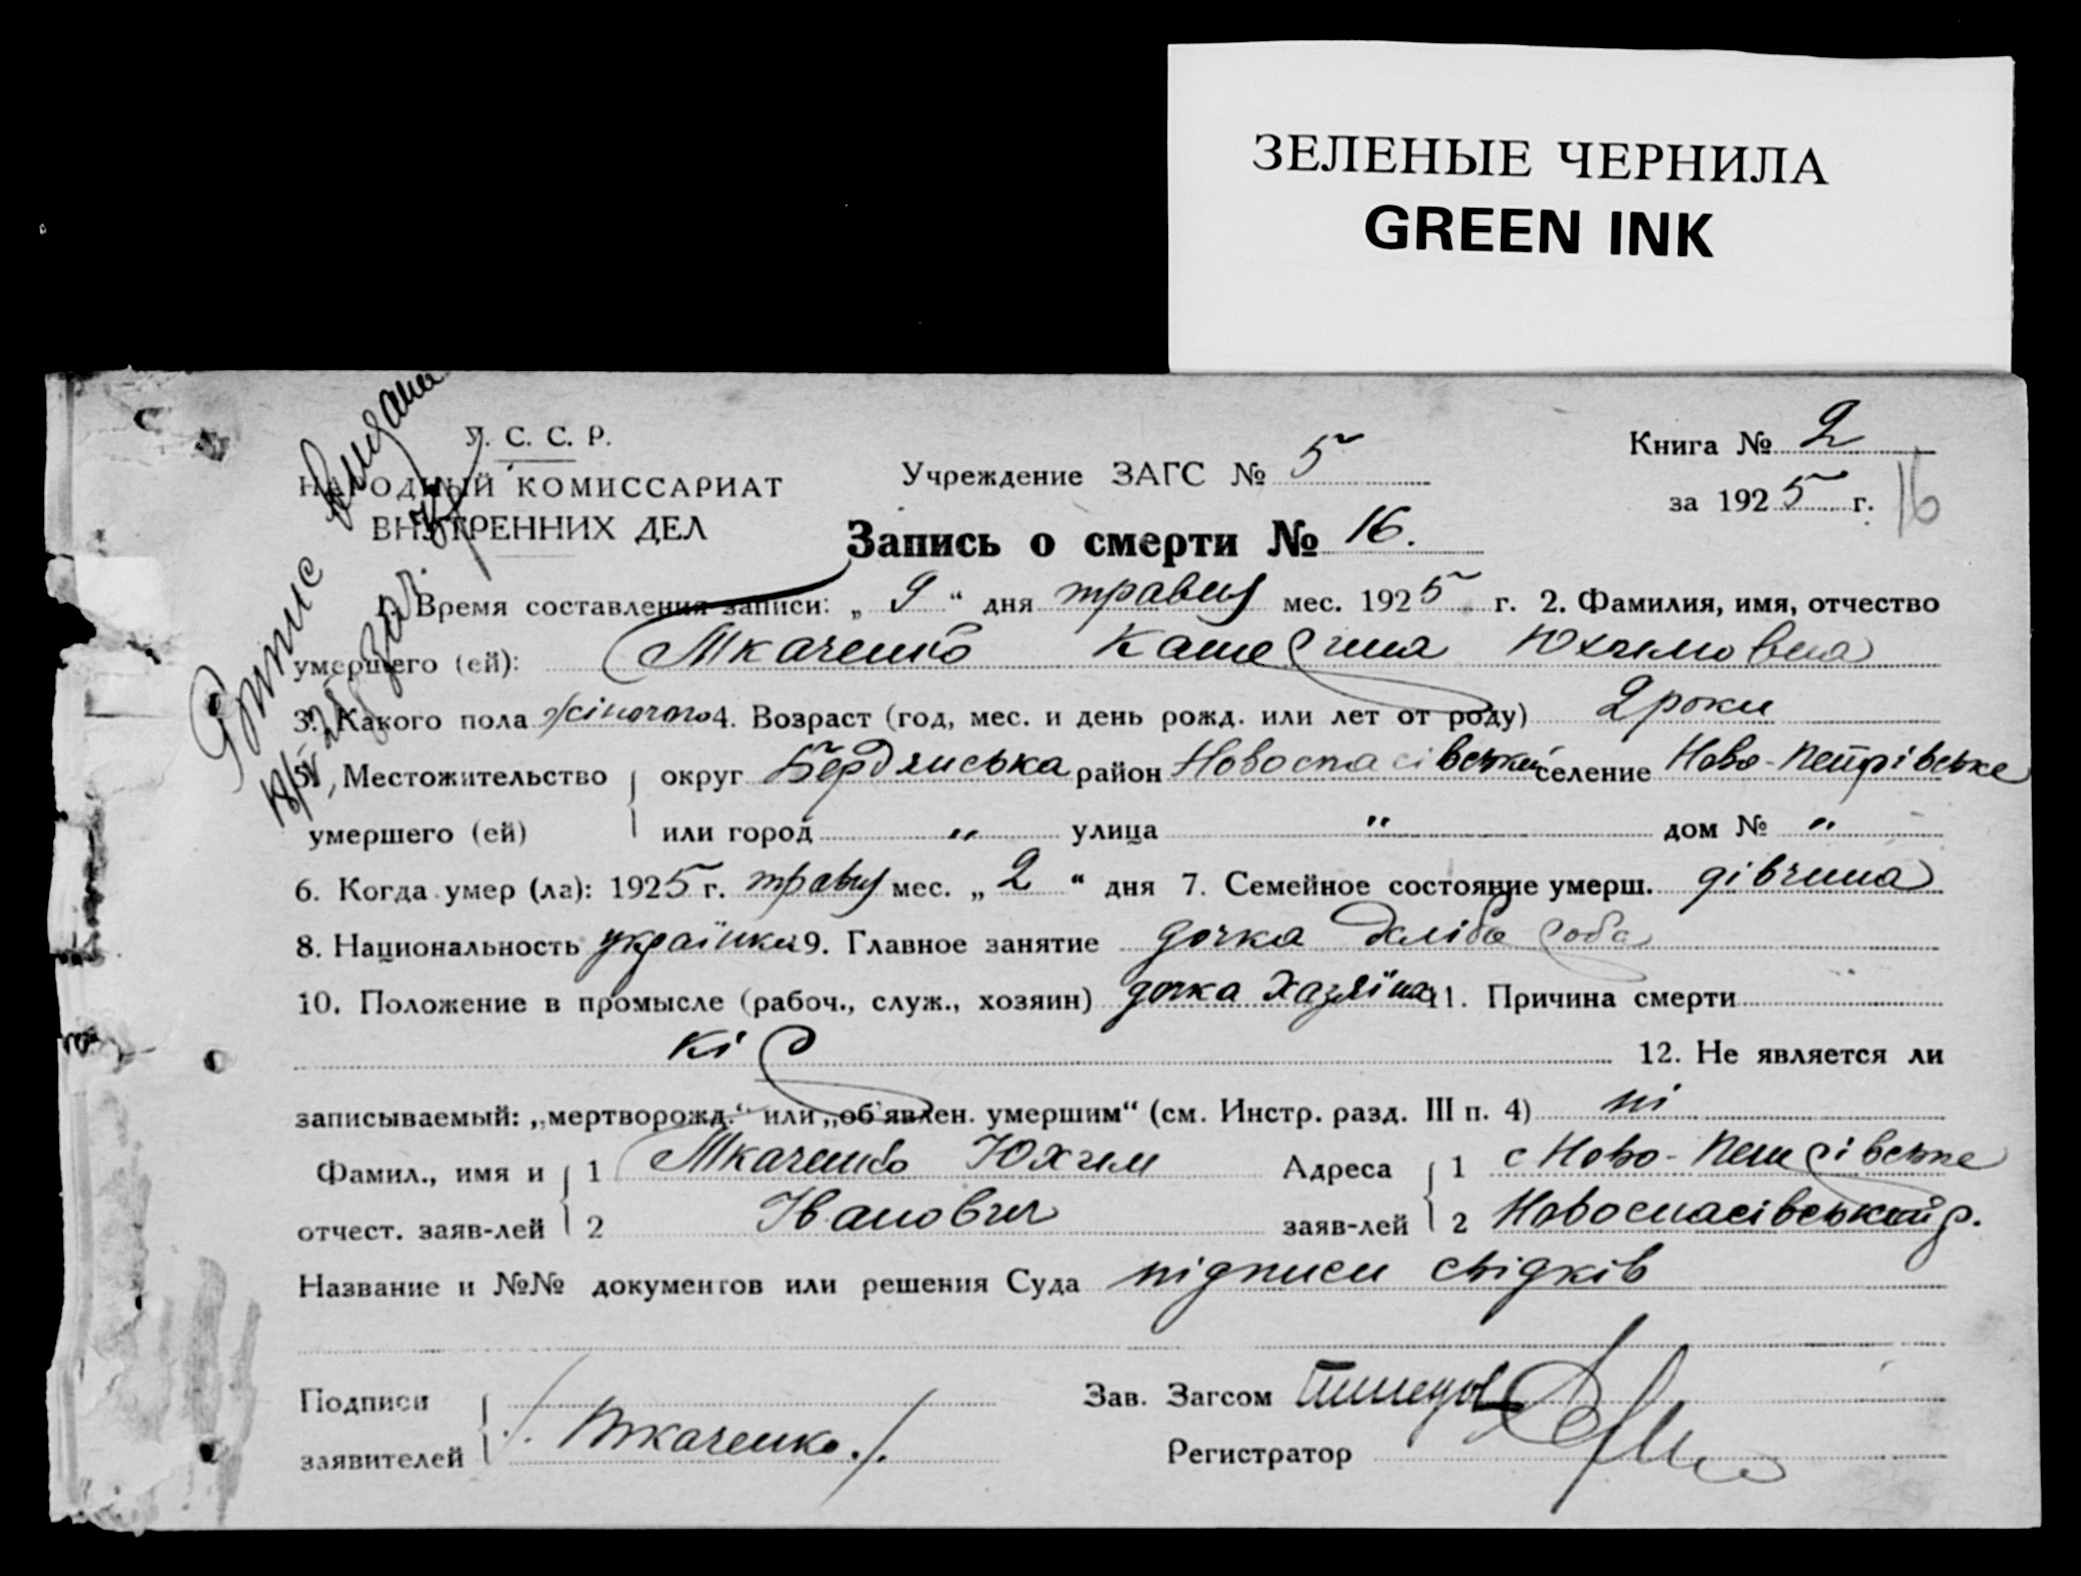 ЗЕЛЕНЫЕ ЧЕРНИЛА
GREEN INK
У. С. С. Р.
НАРОДНЫЙ КОМИССАРИАТ
ВНУТРЕННИХ ДЕЛ
Учреждение ЗАГС № 5
Книга № 2
за 1925 г. 16
Запись о смерти № 16.
Витис видана
1. Время составления записи: „ 9 “ дня травня мес. 1925 г. 2. Фамилия, имя, отчество
умершего (ей): Ткаченко Катерина Юхимовна
3. Какого пола жіночого 4. Возраст (год, мес. и день рожд. или лет от роду) 2 роки
5. Местожительство округ Бердянська район Новоспасівський селение Ново-Петрівське
умершего (ей) или город „ улица „ дом № „
6. Когда умер (ла): 1925 г. травня мес. „ 2 “ дня 7. Семейное состояние умерш. дівчина
8. Национальность українка 9. Главное занятие дочка хлібороба
10. Положение в промысле (рабоч., служ., хозяин) дочка хазяїна 11. Причина смерти
кір 12. Не является ли
записываемый: „мертворожд.“ или „об'явлен. умершим“ (см. Инстр. разд. III п. 4) ні
Фамил., имя и 1 Ткаченко Юхим Адреса 1 с Ново-Петрівське
отчест. заяв-лей 2 Іванович заяв-лей 2 Новоспасівський р.
Название и №№ документов или решения Суда підписи свідків
Подписи Зав. Загсом
заявителей /. Ткаченко ./. Регистратор